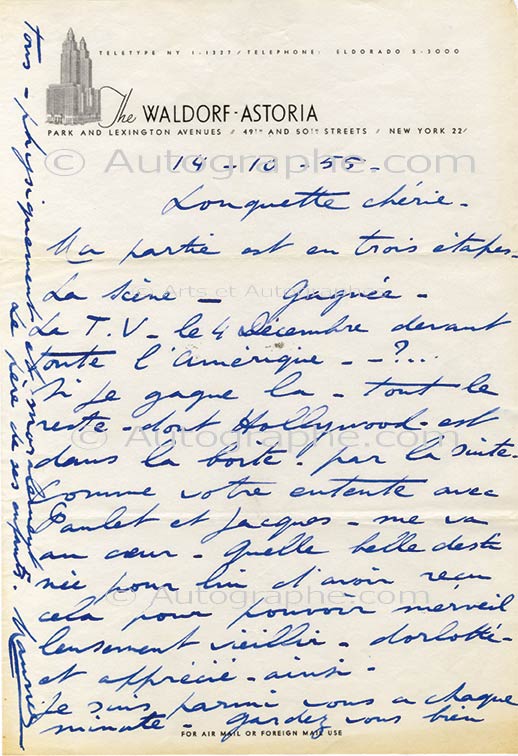 TELETYPE NY 1-1327 / TELEPHONE: ELDORADO 5-3000
The WALDORF-ASTORIA
PARK AND LEXINGTON AVENUES / 49TH AND 50TH STREETS / NEW YORK 22/
© Autographe.com
14-10-55-
Louquette chérie-
Ma partie est en trois étapes-
(c) Arts et Autographes
La scène — Gagnée-
La T.V- le 4 Décembre devant
toute l'Amérique - - ?...
Si je gagne la - tout le
reste - dont Hollywood est
© Autographe.com
dans la boîte - par la suite-
Comme votre entente avec
Paulet et Jacques - me va
au cœur - Quelle belle desti
née pour lui d'avoir reçu
© Autographe.com
cela pour pouvoir merveil
leusement vieillir - dorlotté-
et apprécié - ainsi-
Je suis parmi vous a chaque
minute - Gardez vous bien
tous - physiquement et moralement
Le père de ses enfants.
Maurice
FOR AIR MAIL OR FOREIGN MAIL USE